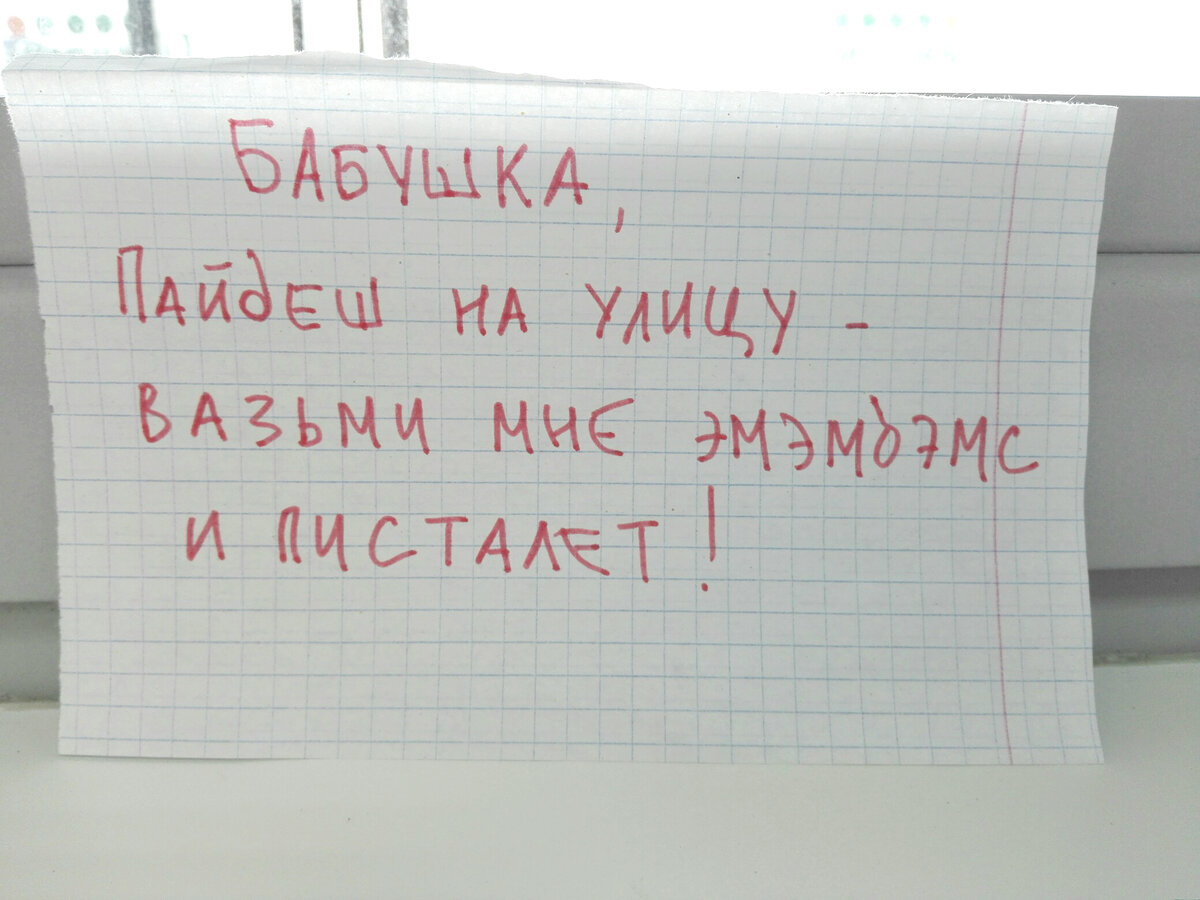 БАБУШКА,
ПАЙДЕШ НА УЛИЦУ -
ВАЗЬМИ МНЕ ЭМЭМДЭМС
И ПИСТАЛЕТ!